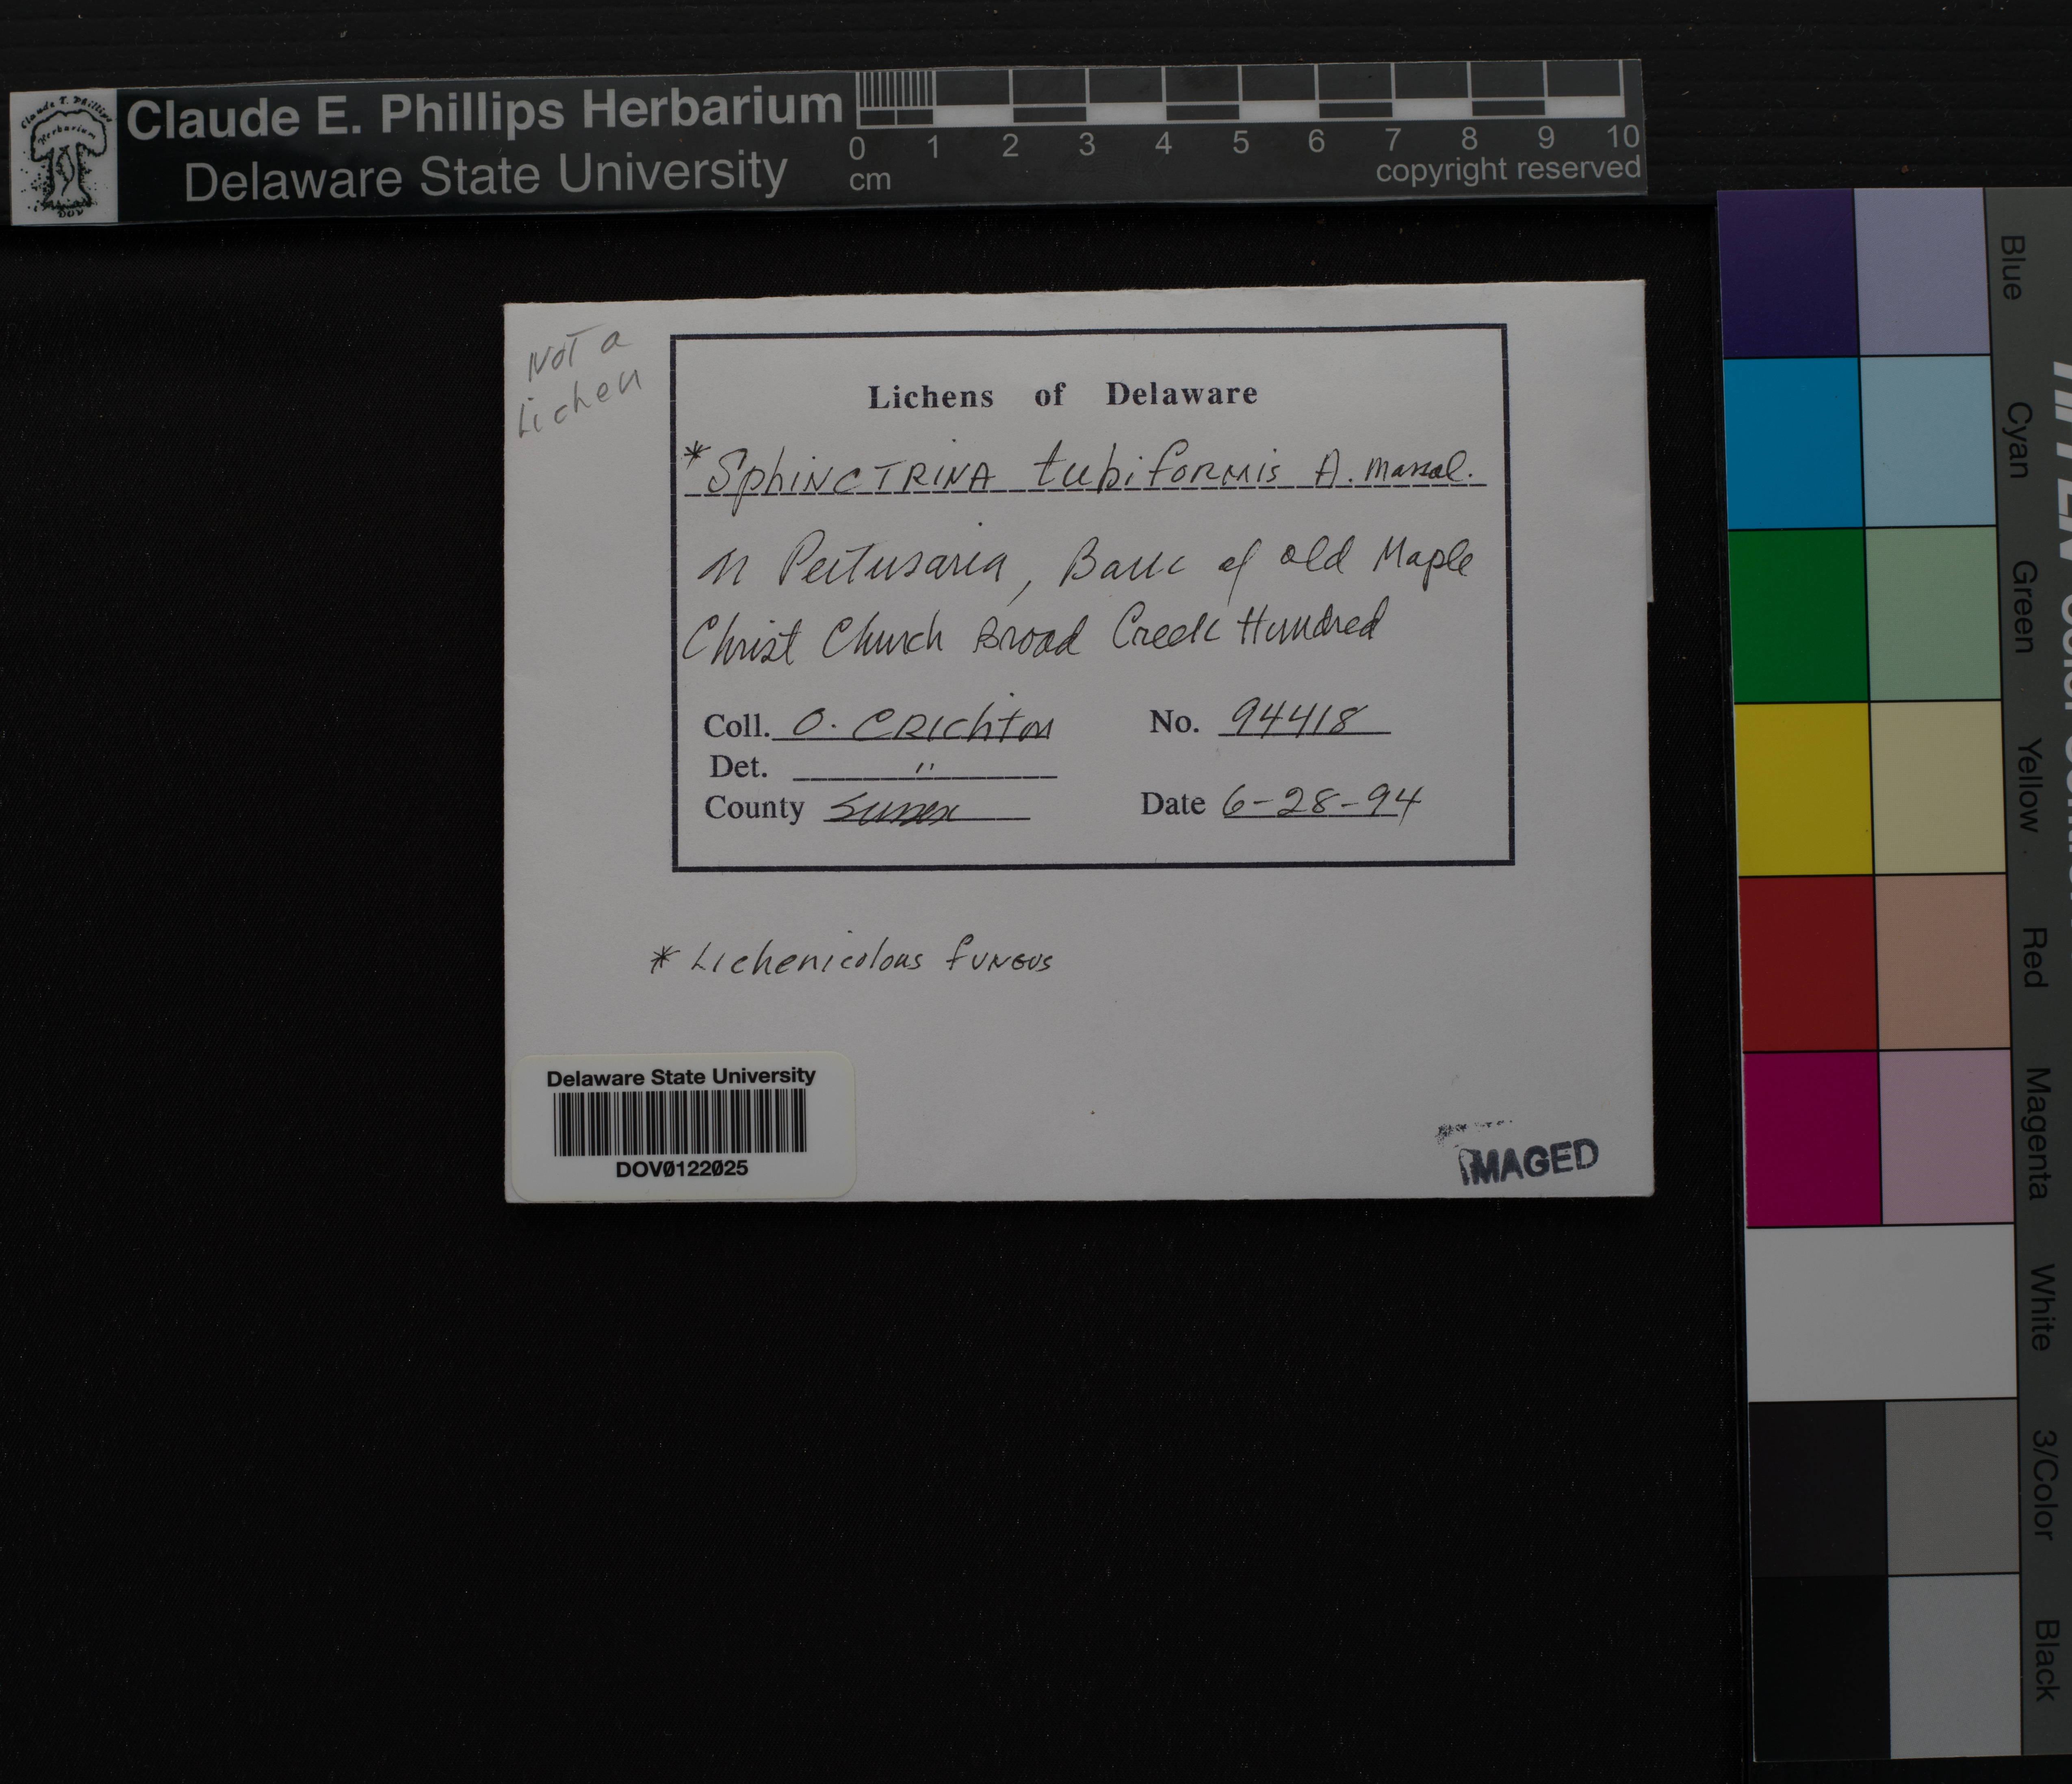 Claude E. Phillips Herbarium
Delaware State University
0 1 2 3 4 5 6 7 8 9 10
cm
copyright reserved
Not a
Lichen
Lichens of Delaware
* Sphinctrina tubiformis A. Massal.
on Pertusaria, Bark of old Maple
Christ Church Broad Creek Hundred
Coll. O. Crichton No. 94418
Det. "
County Sussex Date 6-28-94
* Lichenicolous fungus
Delaware State University
DOV0122025
IMAGED
Blue
Cyan
Green
Yellow
Red
Magenta
White
3/Color
Black